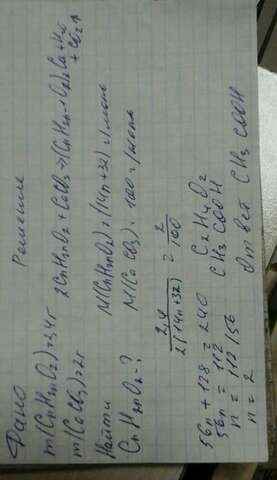 Дано
m(CnH2nO2) = 2,4г
m(CaCO3) = 2г
Найти
CnH2nO2 - ?
Решение
2CnH2nO2 + CaCO3 → (CnH2n-1O2)2Ca + H2O
+ CO2↑
M(CnH2nO2) = (14n+32) г/моль
M(CaCO3) = 100 г/моль
2,4 / 2(14n+32) = 2 / 100
56n + 128 = 240
56n = 112
n = 112/56
n = 2
C2H4O2
CH3COOH
Ответ CH3COOH